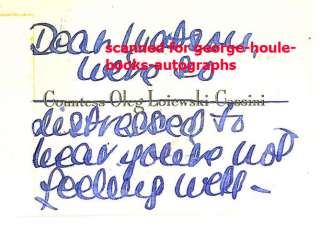 Dear Watson,
scanned for george-houle-
books-autographs
We're so
Countess Oleg Loiewski-Cassini
distressed to
hear you're not
feeling well -